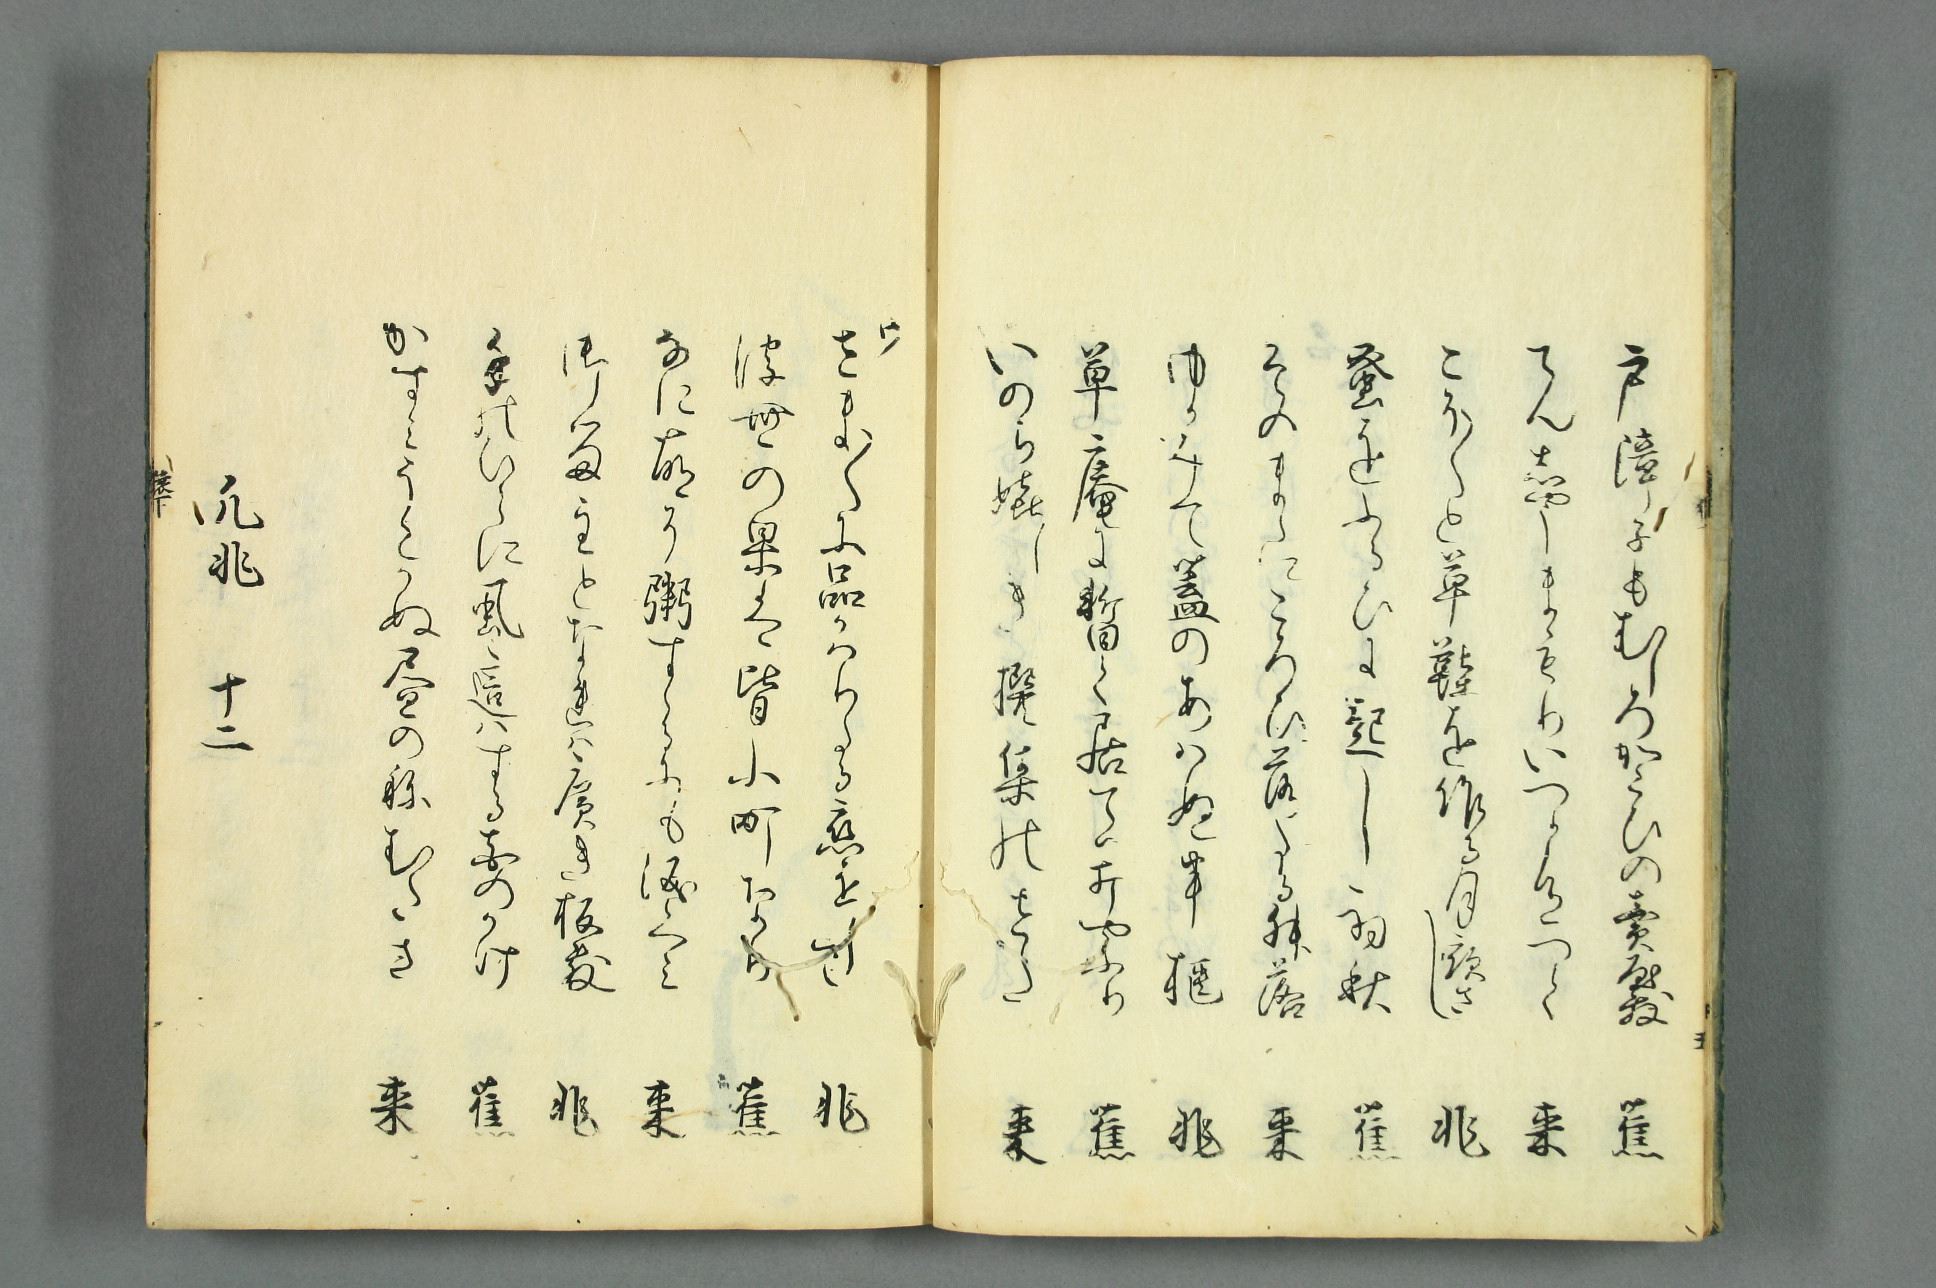 戸障子もむしろがこひの売屋敷 蕉
てん志やうまもりいつか色つく 来
こそ〳〵と草鞋を作る月夜さし 兆
蚤をふるひに起し初秋 蕉
そのまゝにころび落たる升落 来
ゆがみて蓋のあはぬ半櫃 兆
草庵に暫く居ては打やぶり 蕉
いのち嬉しき撰集のさた 来
ウ
さま〴〵に品かはりたる恋をして 兆
浮世の果は皆小町なり 蕉
なに故ぞ粥すゝるにも涙ぐみ 来
御留主となれば広き板敷 兆
手のひらに虱這はする花のかげ 蕉
かすみうごかぬ昼のねむたさ 来
凡兆 十二
猿下